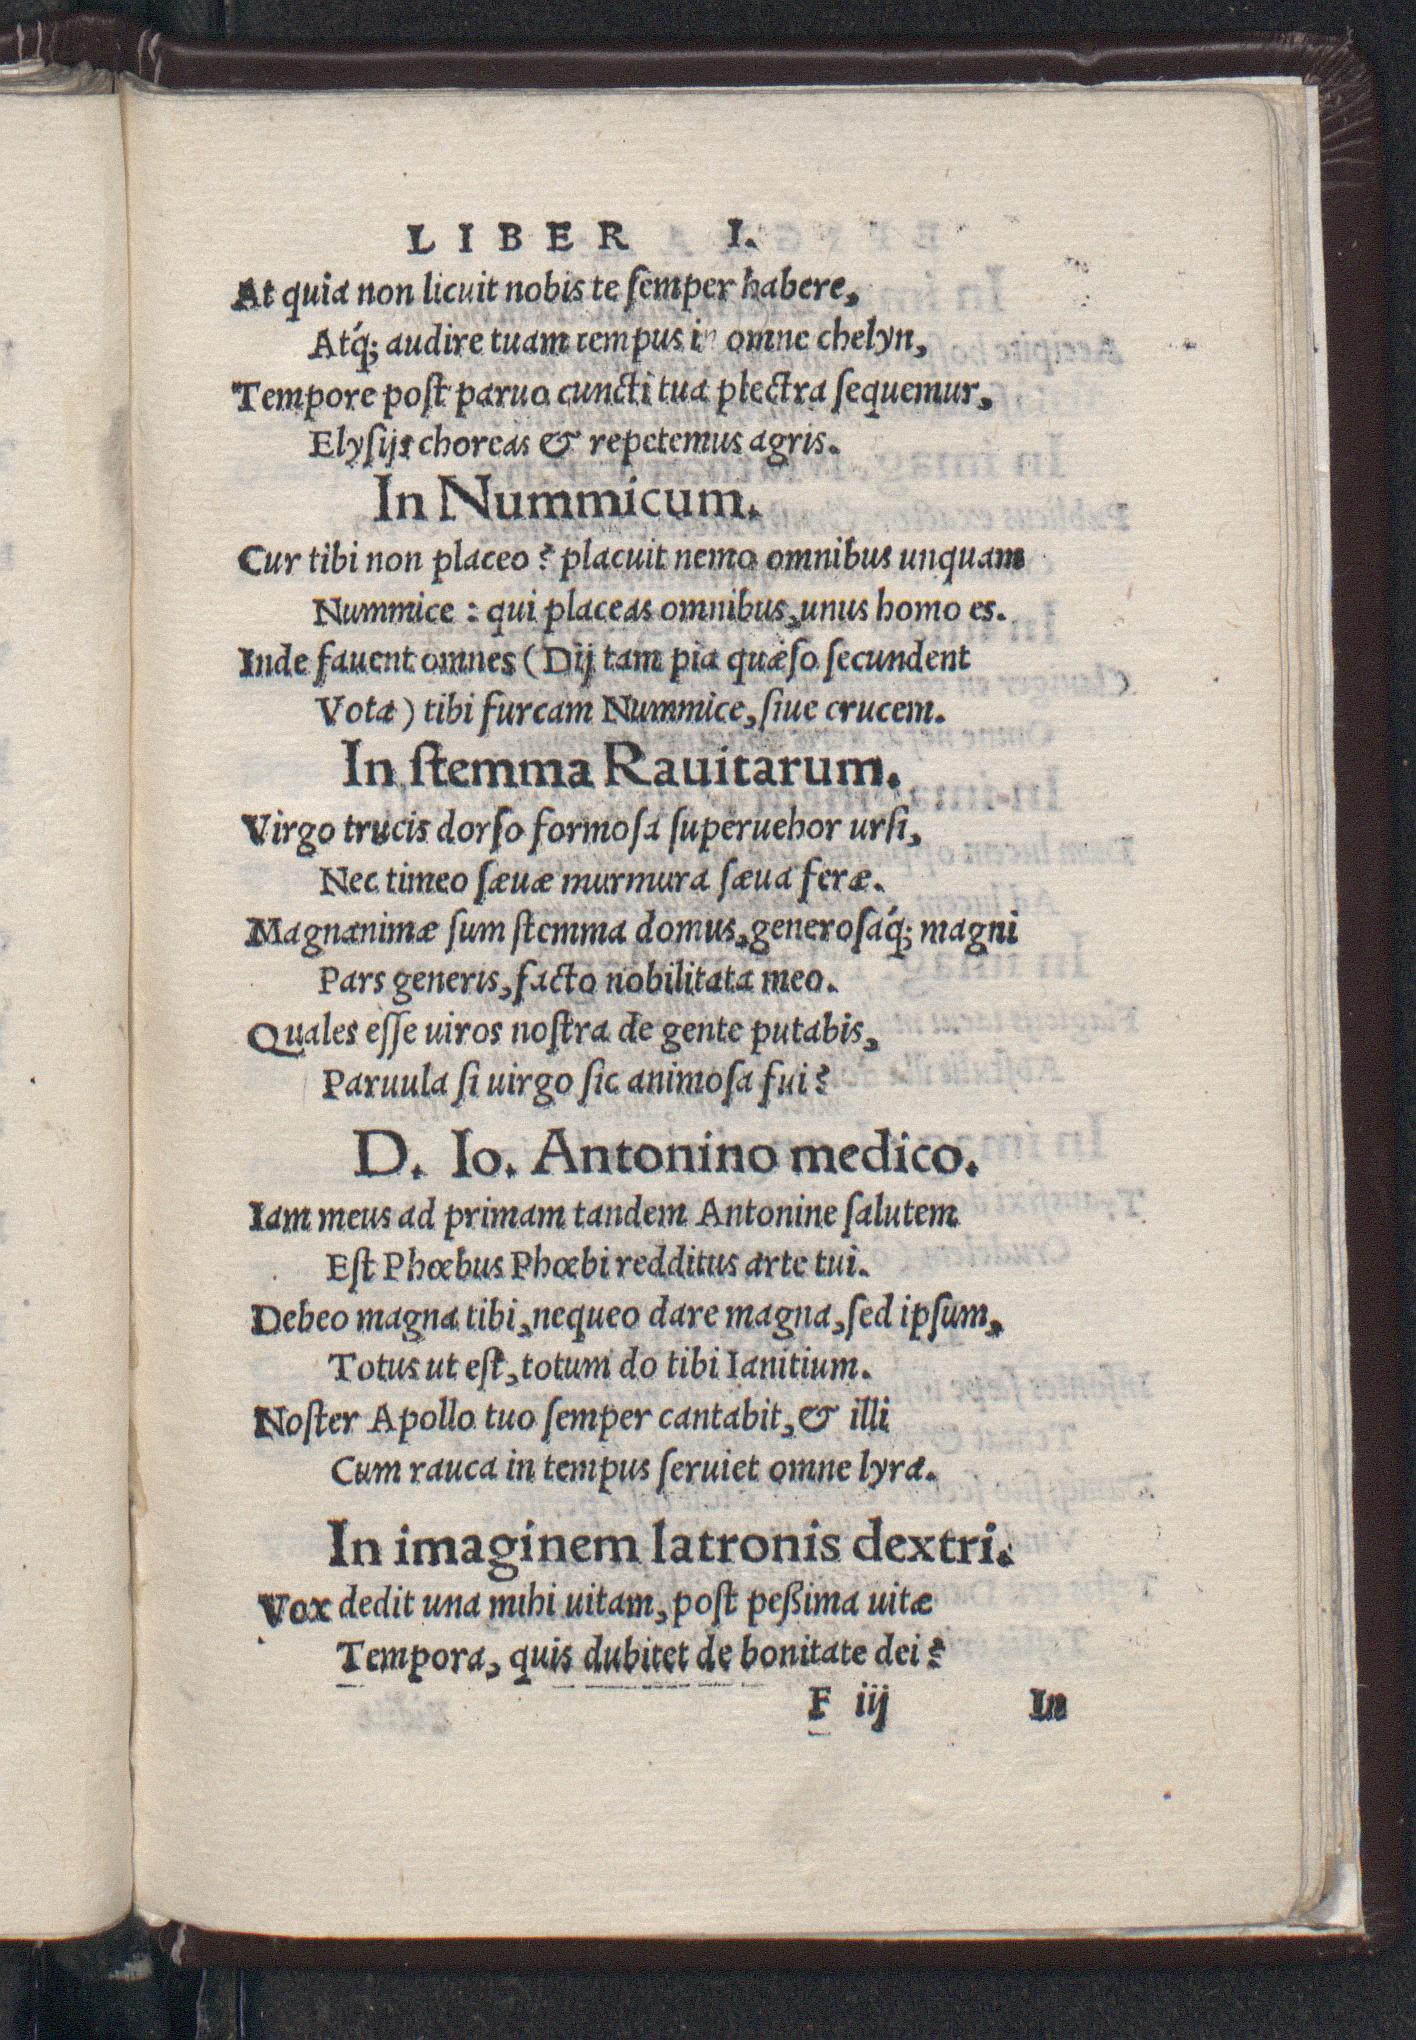 LIBER I.
At quia non licuit nobis te ſemper habere,
Atq́; audire tuam tempus in omne chelyn,
Tempore poſt paruo cuncti tua plectra ſequemur,
Elyſijs choreas & repetemus agris.
In Nummicum.
Cur tibi non placeo? placuit nemo omnibus unquam
Nummice: qui placeas omnibus, unus homo es.
Inde fauent omnes (Dij tam pia quæſo ſecundent
Vota) tibi furcam Nummice, ſiue crucem.
In ſtemma Rauitarum.
Virgo trucis dorſo formoſa ſuperuehor urſi,
Nec timeo ſæuæ murmura ſæua feræ.
Magnanimæ ſum ſtemma domus, generoſaq́; magni
Pars generis, facto nobilitata meo.
Quales eſſe uiros noſtra de gente putabis,
Paruula ſi uirgo ſic animoſa fui?
D. Io. Antonino medico.
Iam meus ad primam tandem Antonine ſalutem
Eſt Phœbus Phœbi redditus arte tui.
Debeo magna tibi, nequeo dare magna, ſed ipſum,
Totus ut eſt, totum do tibi Ianitium.
Noſter Apollo tuo ſemper cantabit, & illi
Cum rauca in tempus ſeruiet omne lyra.
In imaginem latronis dextri.
Vox dedit una mihi uitam, poſt peßima uitæ
Tempora, quis dubitet de bonitate dei?
F iij In